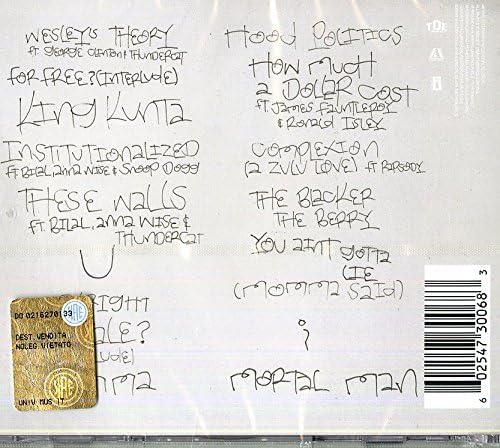 WESLEY'S THEORY
ft. GEORGE CLINTON & THUNDERCAT
FOR FREE? (INTERLUDE)
KING KUNTA
INSTITUTIONALIZED
ft. BILAL, ANNA WISE & SNOOP DOGG
THESE WALLS
ft. BILAL, ANNA WISE &
THUNDERCAT
U
RIGHT
ALE?
UDE)
MMA
HOOD POLITICS
HOW MUCH
A DOLLAR COST
ft. JAMES FAUNTLEROY
& RONALD ISLEY
COMPLEXION
(A ZULU LOVE) ft. RAPSODY
THE BLACKER
THE BERRY
YOU AINT GOTTA
LIE
(MOMMA SAID)
i
MORTAL MAN
TDE
DO 0216270133
SIAE
DEST. VENDITA
NOLEG. VIETATO
UNIV MUS IT
6 02547 30068 3